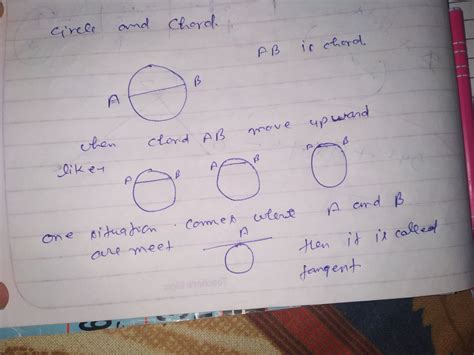 Circle and Chord.
AB is chord.
A B
when chord AB move upward
like
A B A B A B
one situation comes where A and B
are meet A then it is called
tangent